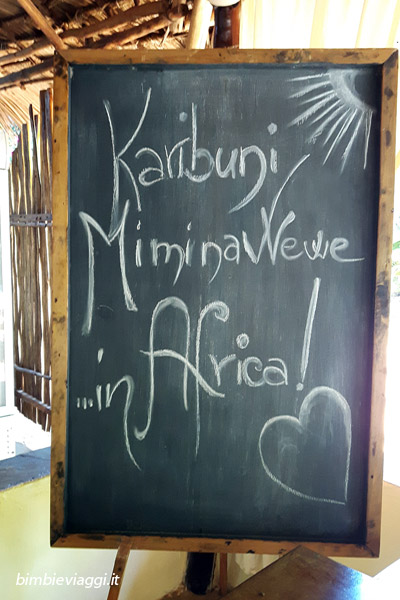 Karibuni
MiminaWewe
...in Africa!
bimbieviaggi.it